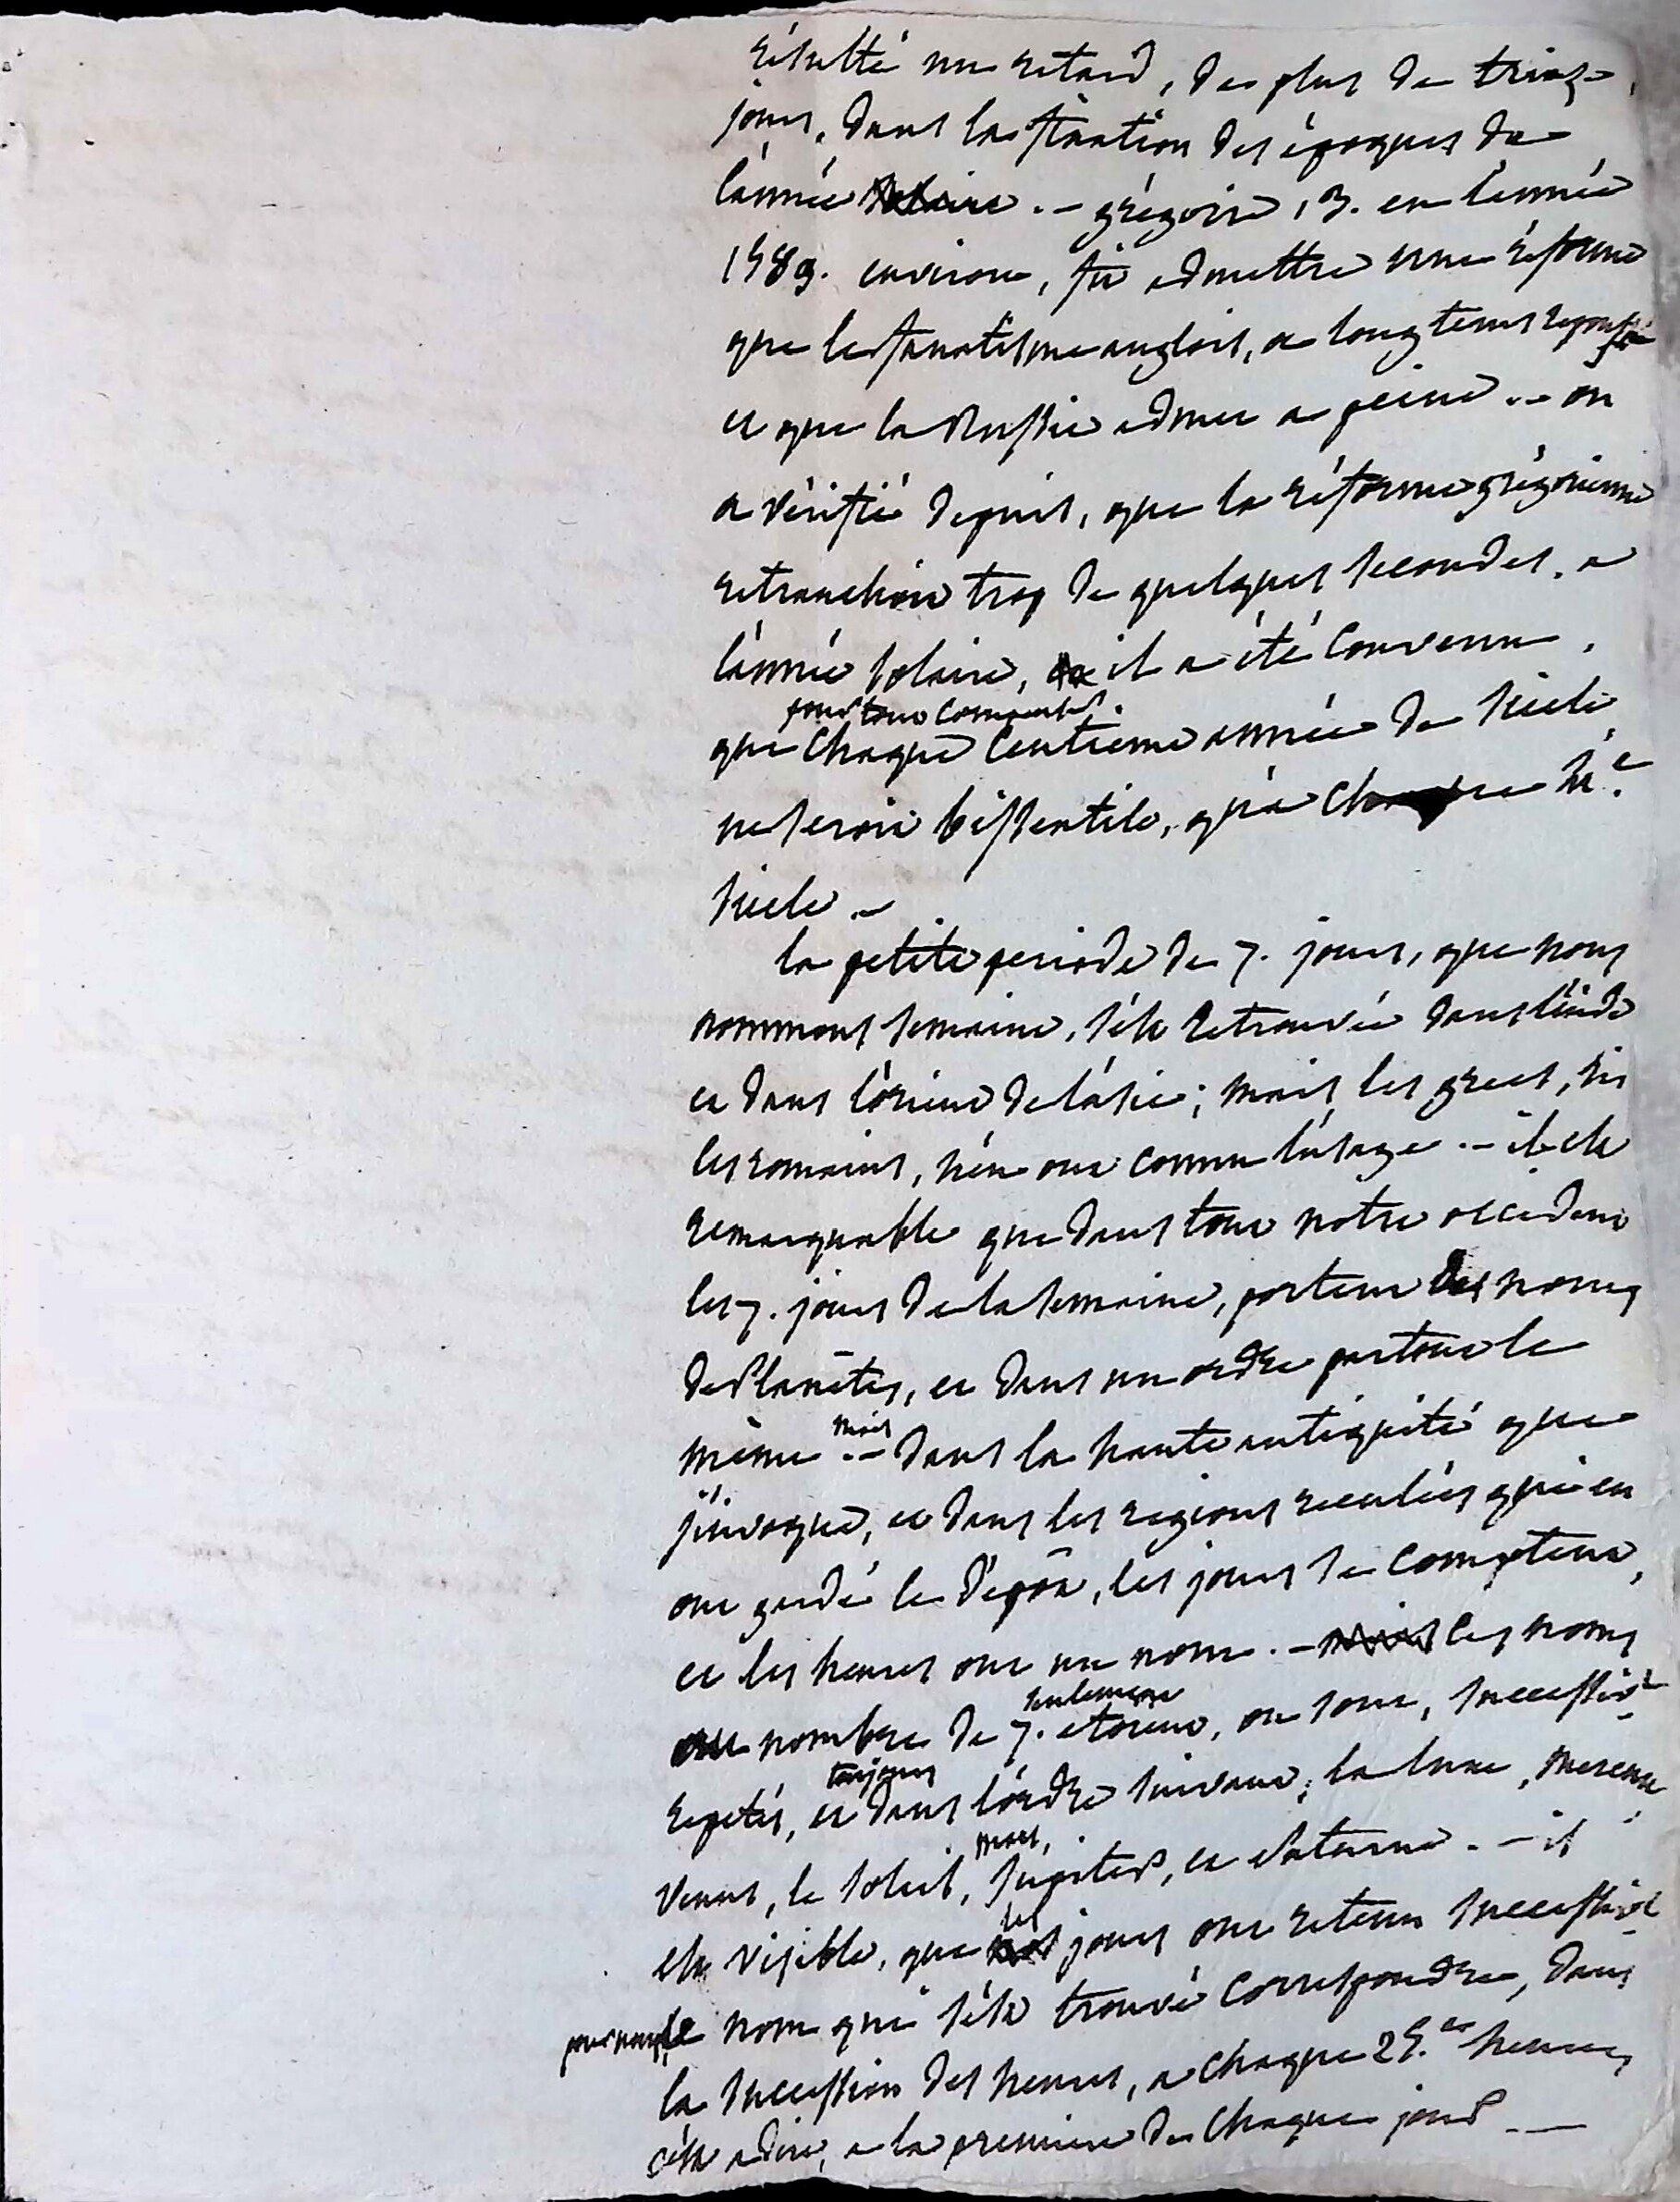 résulté un retard, de plus de treize
jours, dans la fixation des époques de
l'année solaire. — grégoire, 13. en l'année
1589. environ, fit admettre une réforme
que le fanatisme anglois, a longtems repoussé
et que la Russie admet a peine. — on
a vérifié depuis, que la réforme grégorienne
retranchoit trop de quelques secondes, a
l'année solaire, il a été convenu,
pour tout compenser.
que chaque centieme année de siecle
ne seroit bissextile, qu'a chaque
siecle. —
la petite periode de 7. jours, que nous
nommons semaine, s'est retrouvée dans l'inde
et dans l'orient de l'asie; mais les grecs, ni
les romains, n'en ont connu l'usage. — il est
remarquable que dans tout notre occident
les 7. jours de la semaine, portent des noms
de Planètes, et dans un ordre partout le
même. — mais dans la haute antiquité que
j'invoque, et dans les regions reculées qui en
ont gardé le dépôt, les jours se comptent,
et les heures ont un nom. — mais ces noms
au nombre de 7. seulement etoient, ou sont, successivt
repetés, et toujours dans l'ordre suivant; la lune, mercure,
venus, le soleil, mars, jupiter, et saturne. — il
est visible, que les jours ont retenu successivt
pour nom, le nom qui s'est trouvé correspondre, dans
la succession des heures, a chaque 25.es heures,
c'est a dire, a la premiere de chaque jour —